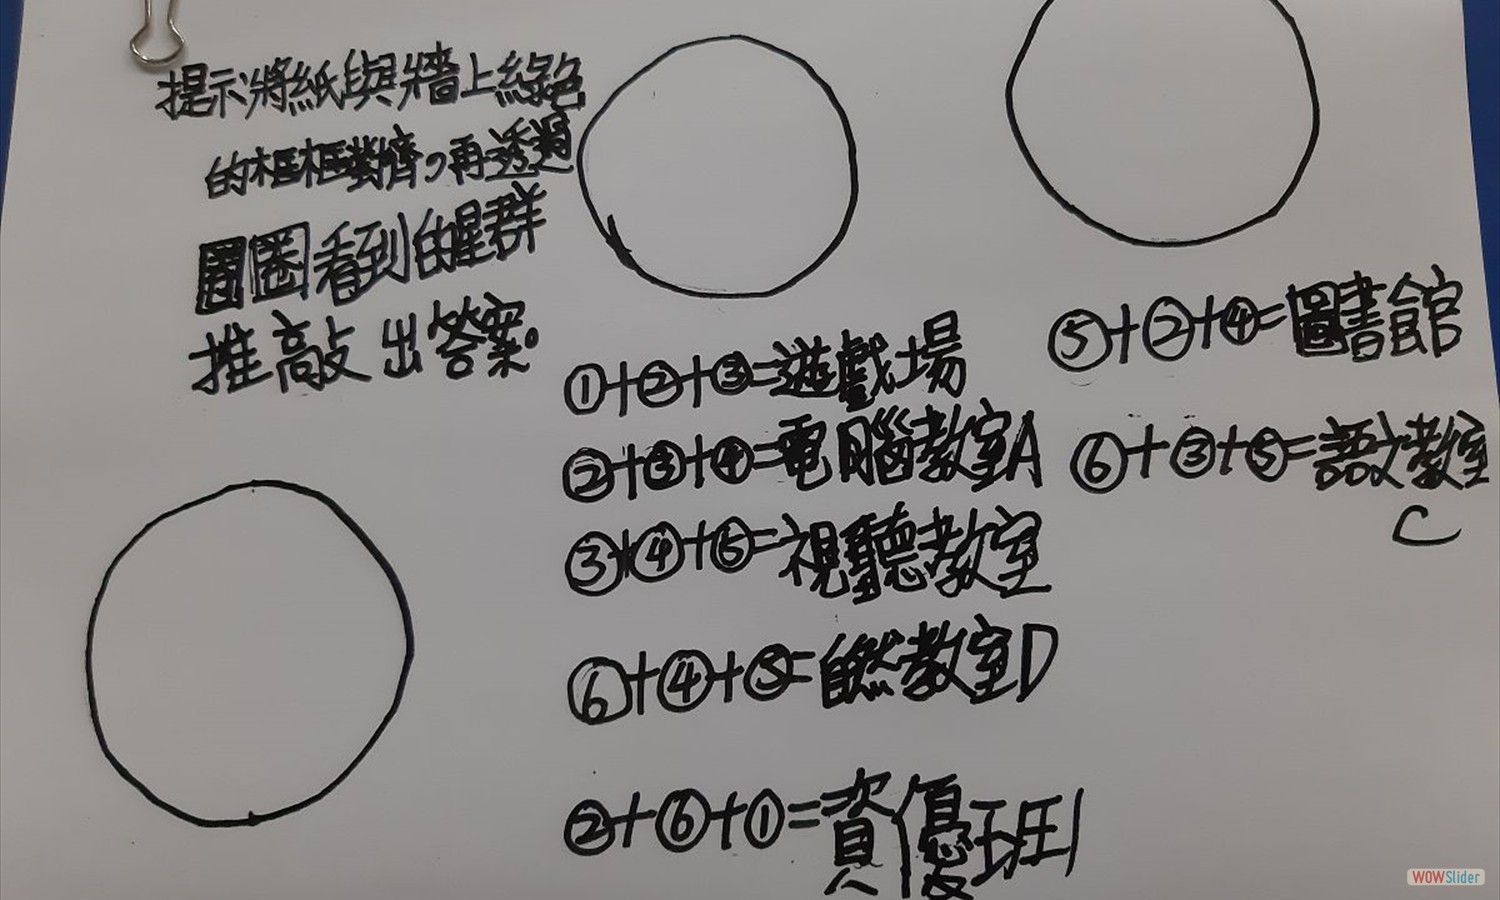 提示:將紙與牆上綠色
的框框對齊,再透過
圈圈看到的星群
推敲出答案。
①+②+③=遊戲場
②+③+④=電腦教室A
③+④+⑤=視聽教室
⑥+④+⑤=自然教室D
②+⑥+①=資優班1
⑤+②+④=圖書館
⑥+③+⑤=語文教室
C
WOWSlider